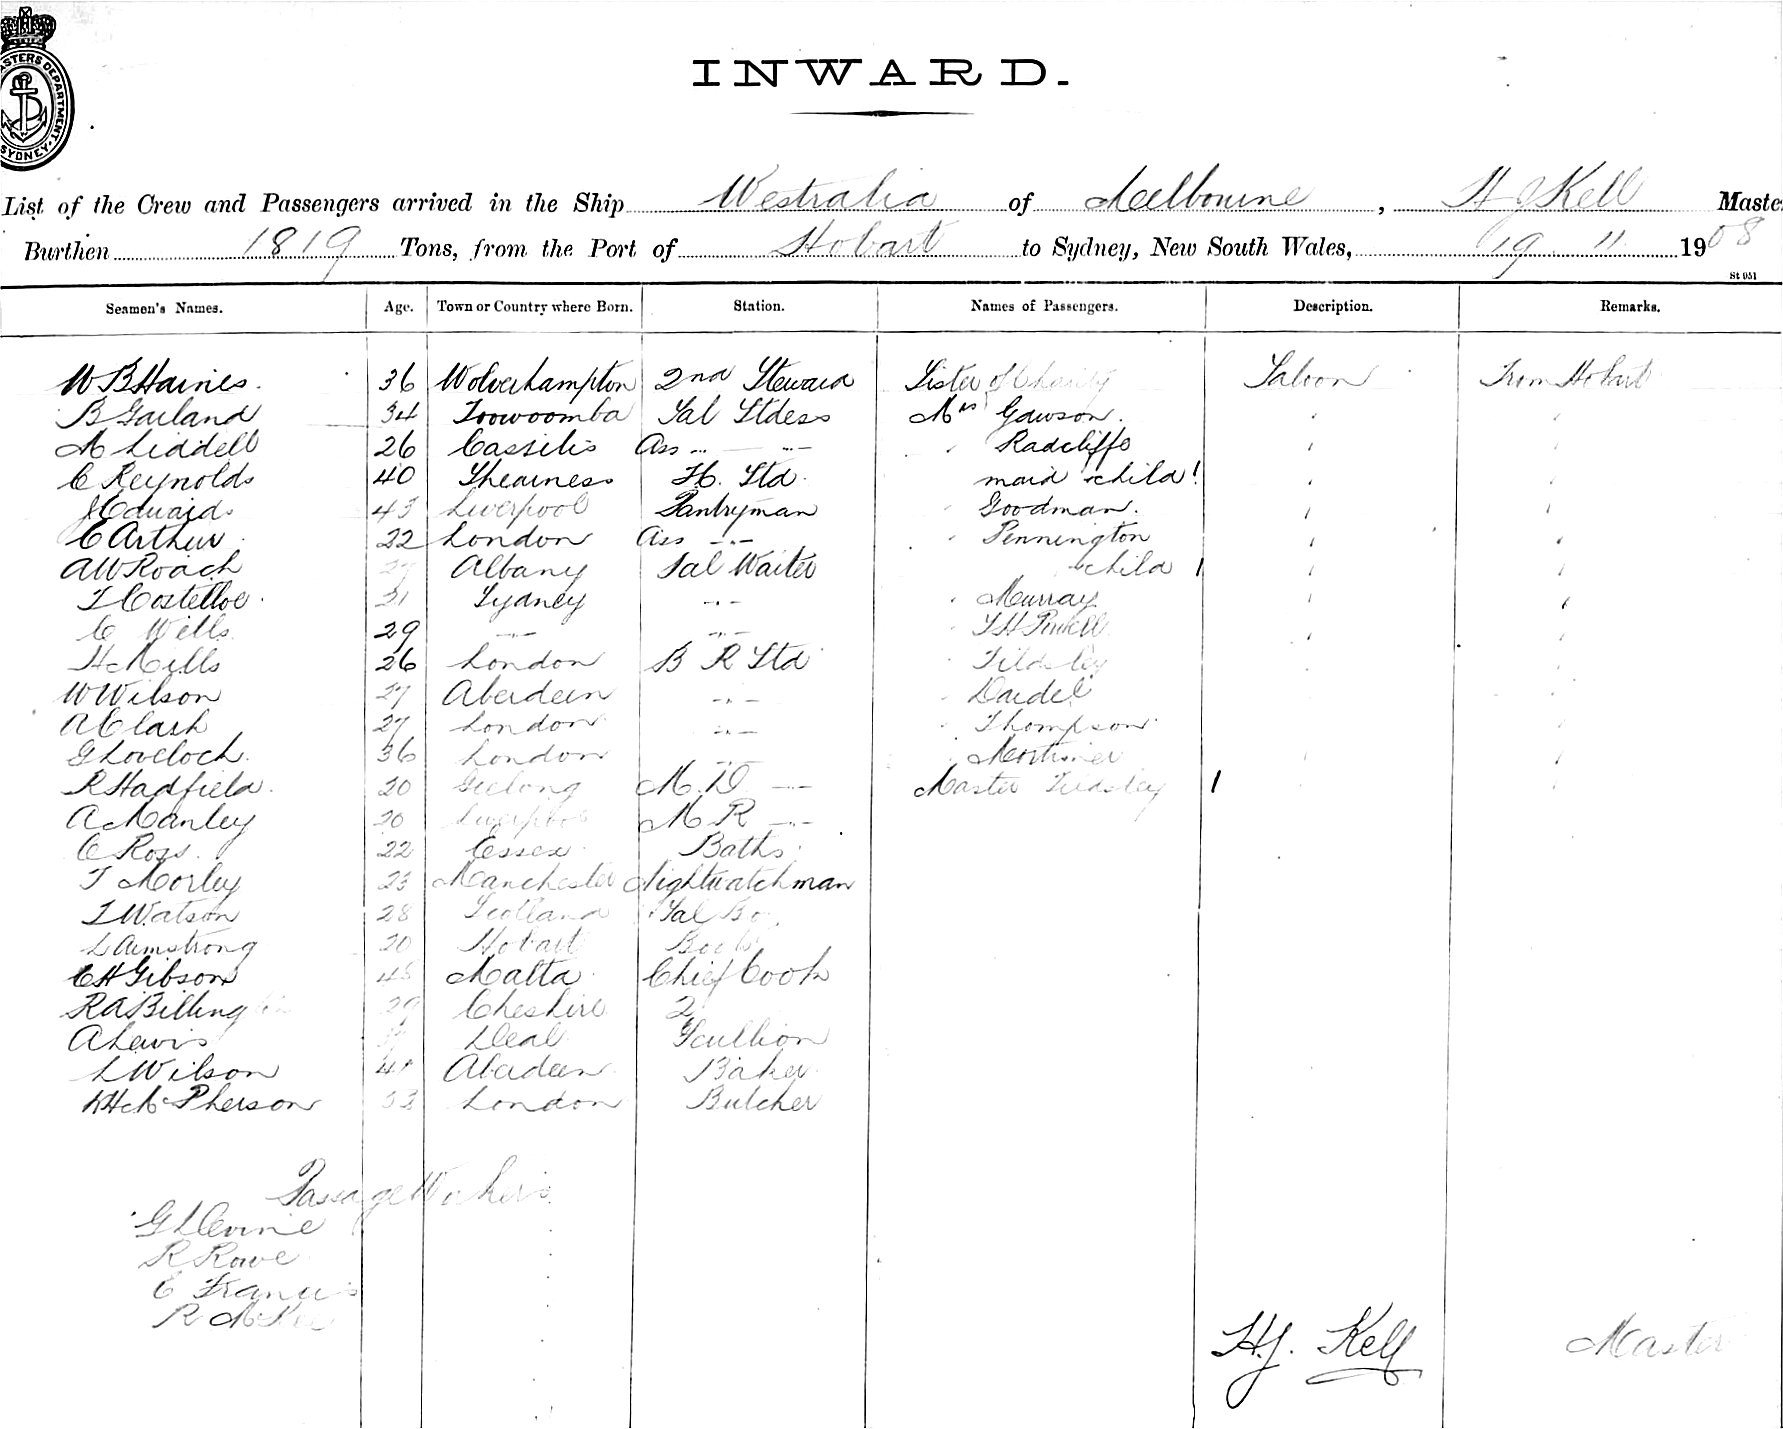 MASTERS DEPARTMENT. SYDNEY.
INWARD.
List of the Crew and Passengers arrived in the Ship Westralia of Melbourne, H J Kell Master
Burthen 1819 Tons, from the Port of Hobart to Sydney, New South Wales, 19 11 1908
St 051
Seamen's Names. Age. Town or Country where Born. Station. Names of Passengers. Description. Remarks.
W B Haines. 36 Wolverhampton 2nd Steward Sister of Charity Saloon From Hobart
B Garland 34 Toowoomba Sal Stdess Mrs Gawson. " "
M Liddell 26 Cassilis Ass -"- -"- " Radcliffe " "
C Reynolds 40 Shearness F.C. Std. maid & child 1 " "
J Edwards 43 Liverpool Pantryman " Goodman. " "
C Arthur 22 London Ass -"- " Pennington "
A W Roach 27 Albany Sal Waiter & child 1 " "
T Costelloe 21 Sydney -"- " Murray " "
C Wells 29 -"- -"- " " "
H Mills 26 London B R Std " Tildsley "
W Wilson 27 Aberdeen -"- " Dardel "
A Clark 27 London -"- " Thompson "
G Lovelock 36 London -"- " Mortimer " "
R Hadfield. 20 Geelong M. D -"- Master Tildsley 1 "
A Manley 20 Liverpool M R -"-
C Ross. 22 Essex Baths
T Morley 23 Manchester Nightwatchman
T Watson 28 Scotland Sal
L Armstrong 20 Hobart
C H Gibson 48 Malta Chief Cook
R A Billing 29 Cheshire 2
A Lewis Deal Scullion
L Wilson 41 Aberdeen Baker
McPherson 33 London Butcher
Passage Workers
G Levine
R Rowe
C Francis
R McKee
H.J. Kell Master